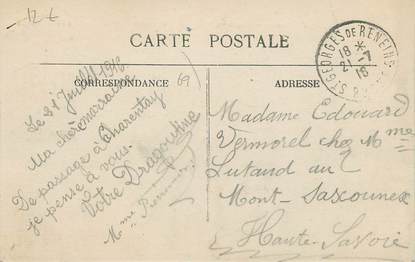 12 €
CARTE POSTALE
CORRESPONDANCE
69
ADRESSE
ST GEORGES DE RENEINS
18 *
2 -7
16
Le 21 Juillet 1916
Ma chère marraine
De passage à Charentay
je pense à vous.
Votre Dragoutine
Madame Edouard
Vermorel chez Mme
Lutaud au
Mont-Saxonnex
Haute-Savoie
Mme